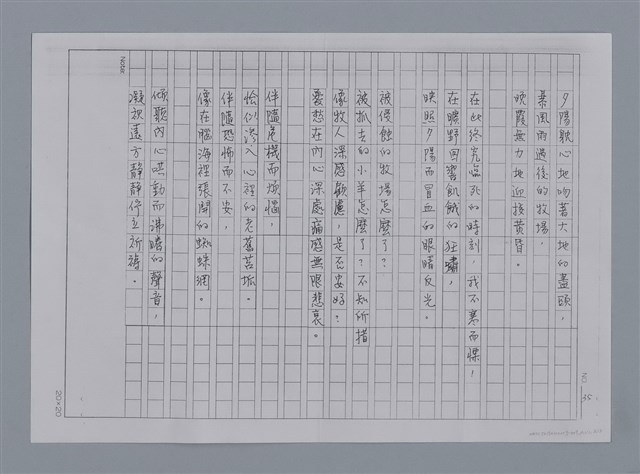 夕陽耽心地吻著大地的盡頭，
暴風雨過後的牧場。
晚霞無力地迎接黃昏。
在此終究臨死的時刻，我不寒而慄，
在曠野回響飢餓的狂嘯，
映照夕陽而冒血的眼睛反光。
被侵蝕的牧場怎麼了？
被抓去的小羊怎麼了？不知所措
像牧人深感顧慮，是否安好？
憂愁在內心深處痛感無限悲哀。
伴隨危機而煩惱，
恰似滲入心裡的老舊苦垢。
伴隨恐怖而不安，
像在腦海裡張開的蜘蛛網。
傾聽內心哄動而沸騰的聲音，
凝視遠方靜靜停立祈禱。
Note:
NO. 35
20×20